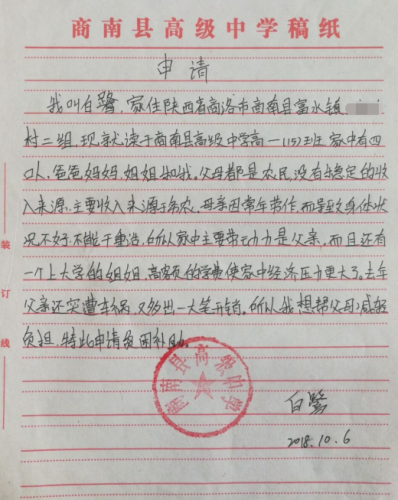 商南县高级中学稿纸
申请
我叫白鹭，家住陕西省商洛市商南县富水镇
村二组，现就读于商南县高级中学高一(15)班家中有四
口人，爸爸妈妈，姐姐和我。父母都是农民，没有稳定的收
入来源，主要收入来源于务农，母亲因常年劳作而导致身体状
况不好，不能干重活，所以家中主要劳动力是父亲，而且还有
一个上大学的姐姐，高额的学费使家中经济压力更大了。去年
父亲还突遭车祸，又多出一大笔开销。所以我想帮父母减轻
负担，特此申请贫困补助。
装订线
商南县高级中学
白鹭
2018.10.6